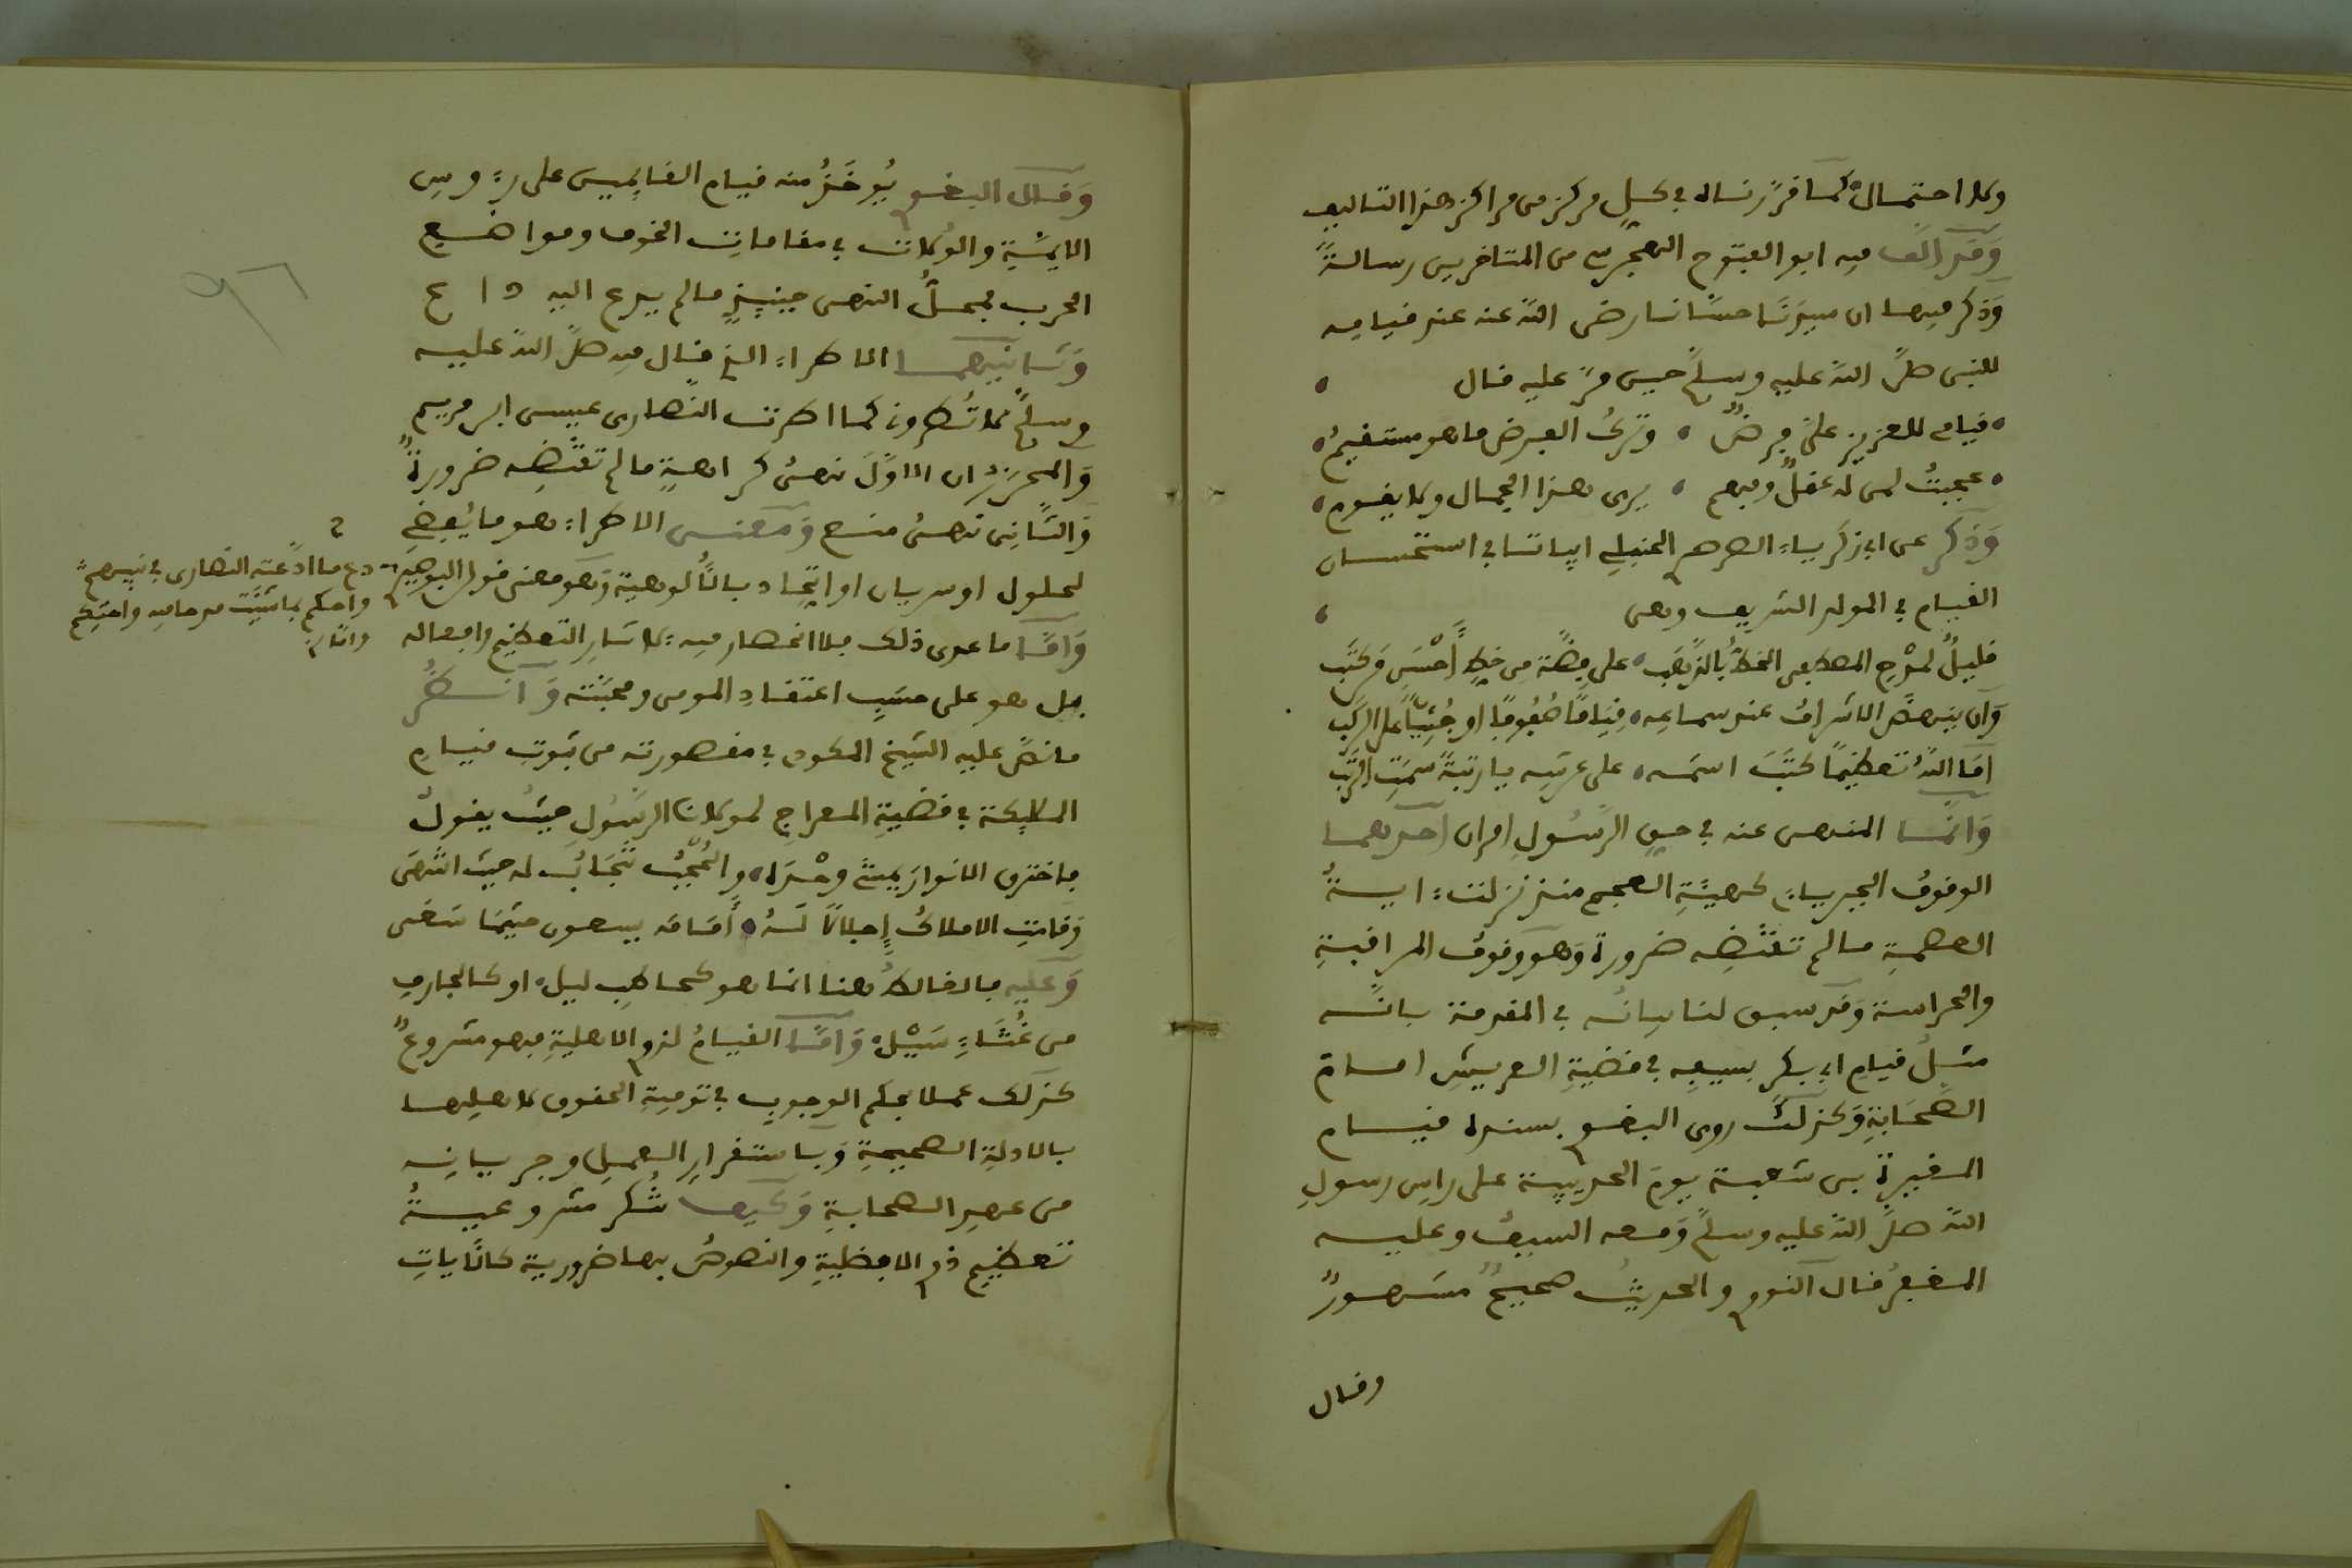 ولا احتمال كما قررناه في كل مركز من مراكز هذا التاليف
وَقد الَّف فيه ابو الفتوح الهجرسي من المتاخرين رسالةً
وَذكر فيها ان سيدنا حسانا رضى الله عنه عند قيامه
للنبى صلَّى الله عليه وسلَّم حين مرَّ عليه قال
قيامى للعزيز علىَّ فرضٌ وتركُ الفرض ما هو مستقيمُ
عجبتُ لمن له عقلٌ وفهم يرى هذا الجمال ولا يقوم
وَذكر عن ابي زكرياء الصرصري الحنبلي ابياتا في استحسان
القيام في المولد الشريف وهى
قليلٌ لمدْحِ المصطفى الخطُّ بالذَّهَب على فِضَّة من خطِّ أَحْسَنِ مَن كَتَب
وَان ينهضَ الاشرافُ عند سماعه قِيَامًا صُفُوفًا او جُثِيًّا على الركَب
امَا اللهُ تعظيمًا كتَبَ اسمَه على عرشه يا رتبةً سمَتِ الرُّتَب
وَانَّما المنهى عنه في حق الرَّسُولِ امران احدهما
الوقوفُ الجبرياءِ كهيئَةِ العجم منذ نزلت ءايةُ
العصمةِ ما لم تقتضِه ضرورة وَهو وقوفُ المراقبةِ
والحراسة وَقد سبق لنا بيانُه في المقدمة بانَّه
مثلُ قيام ابي بكر بسيفِه في قضيةِ العريشِ امامَ
الصَّحَابَةِ وَكذلك روى البغوي بسنده قيام
المغيرة بن شعبة يومَ الحديبية على راسِ رسولِ
الله صلَّى الله عليه وسلَّم وَمعه السيفُ وعليه
المغفرُ قال النووي والحديثُ صحيحٌ مشهورٌ
وقال
وَقال البغوي يُوخَذُ منه قيام القايِمين على رءوسِ
الايمَّةِ والوُلاتِ في مقاماتِ الخوف ومواضع
الحرب فمحلُّ النهى حينئِذٍ ما لم يدع اليه داع
وَثانيهما الاطراءُ الذي قال فيه صلَّى الله عليه
وسلَّم لا تُطرونى كما اطرت النصارى عيسى ابن مريم
وَالمحرَّرُ ان الاوَّلَ نهىُ كراهةٍ ما لم تقتضِه ضرورةٌ
وَالثَّانِى نهىُ منع وَمعنى الاطراء هو ما يُفضِى
لحلول او سريان او اتِّحاد بالأُلوهية وَهو معنى قول البوصيري
دع ما ادَّعته النصارى في نبيهم
واحكم بما شئت مدحا فيه واحتكم
وامَّا
وَامَّا ما عدى ذلك فلا انحصار فيه لاسَارِ التعظيم وافعاله
بل هو على حسَبِ اعتقادِ المومن ومحبَّته وَانظُر
ما نصَّ عليه الشيخ المكودي في مقصورته من ثبوت قيام
الملايكة في قضيةِ المعراجِ لمولانا الرسُولِ حيثُ يقولُ
فاخترق الانوارَ يمشى وحْدَه والحُجْبُ تنجَابُ له حيث انتهَى
وَقامتِ الاملاكُ إجلالًا لَهُ أمَامَه يسعون حيثما سَعَى
وَعليه فالقائلُ هنا انما هو كحاطبِ ليل او كالجارفِ
من غُثاءِ سَيْل وَامَّا القيامُ لذوي الاهليةِ فهو مشروعٌ
كذلك عملا بحكم الوجوبِ في توفيةِ الحقوق لاهلِها
بالادلةِ الصحيحةِ وَباستقرارِ العملِ وجريانِه
من عصرِ الصحابةِ وَكيف تُنكر مشروعيةُ
تعظيمِ ذوي الافضليةِ والنصوصُ بها ضرورية كالآياتِ